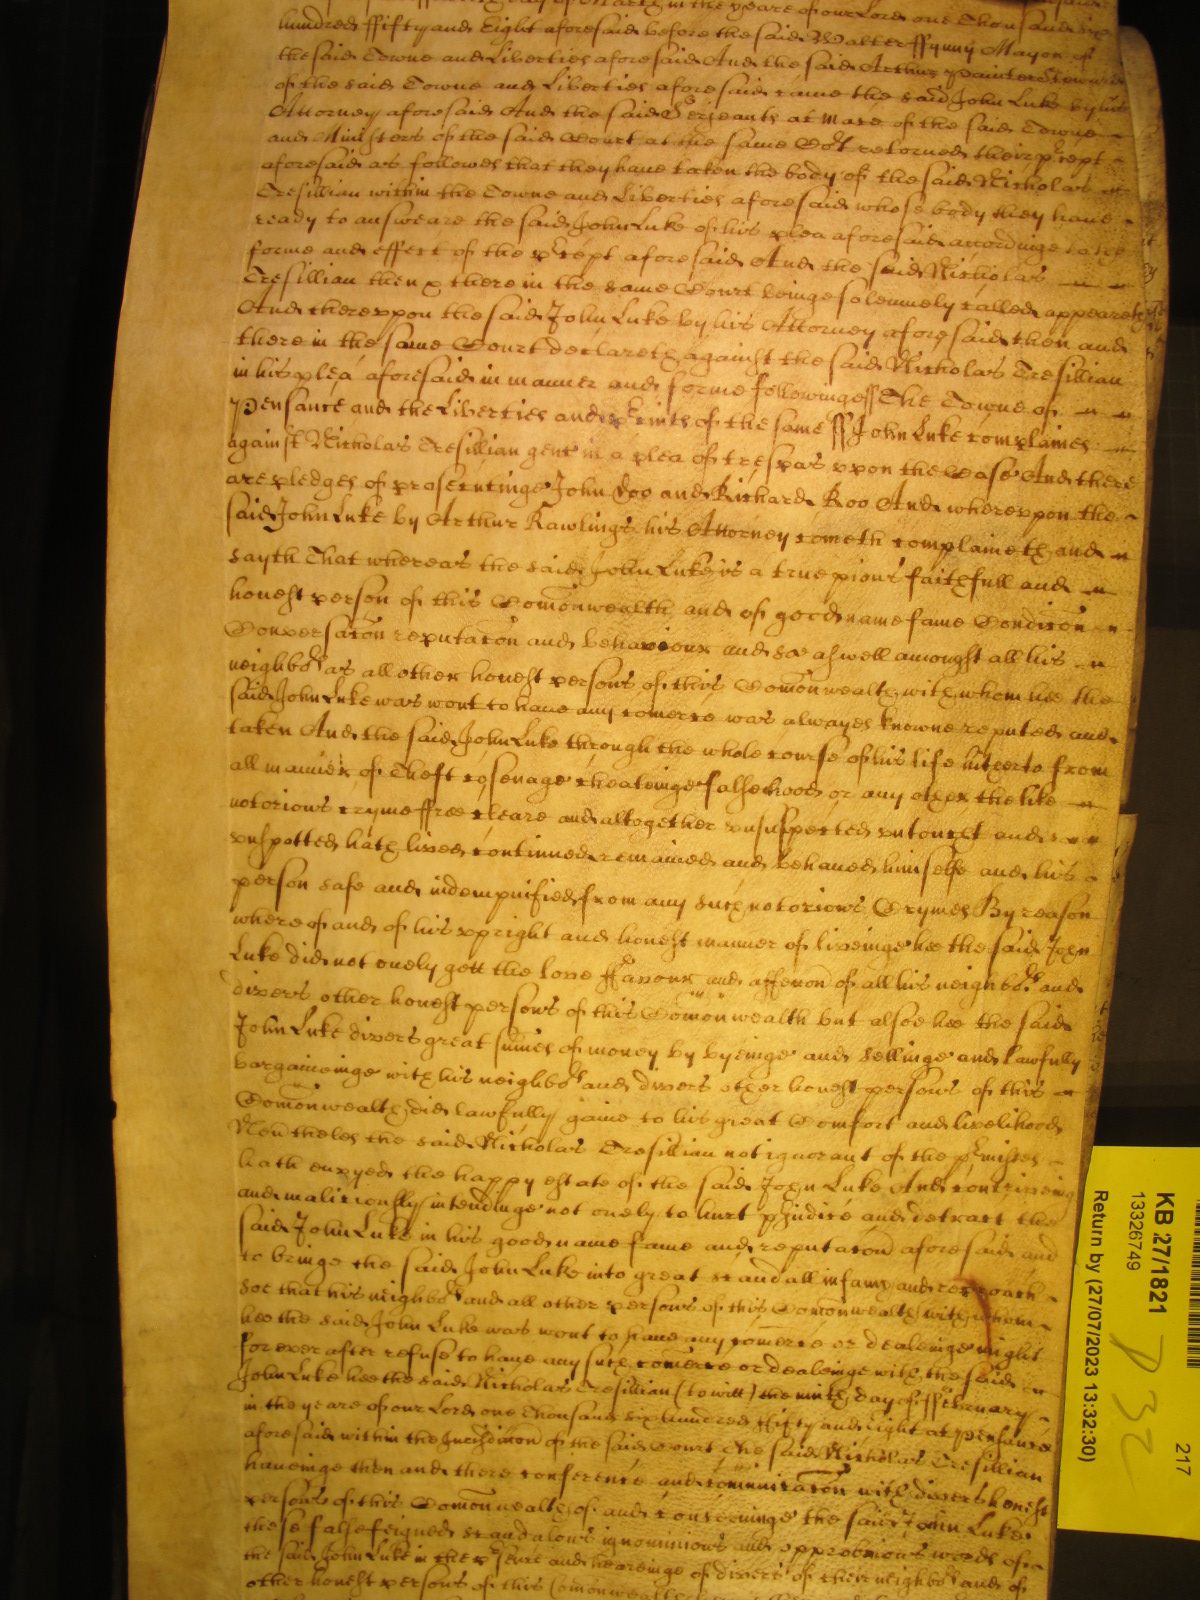 day of March in the yeare of our Lord one Thousand six
hundred ffifty and Eight aforesaid before the said Walter ffynny Mayor of
the said Towne and Liberties aforesaid And the said Arthur Painter Steward
of the said Towne and Liberties aforesaid came the said John Luke by his
Attorney aforesaid And the said Serjeants at mace of the said Towne
and Ministers of the said Court at the same Co:rt retorned their p:rcept
aforesaid as followes that they have taken the body of the said Nicholas
Tresillian within the Towne and Liberties aforesaid whose body they have
ready to answeare the said John Luke of his plea aforesaid accordinge to the
forme and effect of the p:rcept aforesaid And the said Nicholas
Tresillian then & there in the same Court beinge solemnely called appeareth
And thereuppon the said John Luke by his Attorney aforesaid then and
there in the same Court declareth against the said Nicholas Tresillian
in his plea aforesaid in manner and forme followinge ss The Towne of
Pensance and the Liberties and p:rcincts of the same ss John Luke complaines
against Nicholas Tresillian gent in a plea of trespas uppon the Case And there
are pledges of prosecutinge John Doo and Richard Roo And whereuppon the
said John Luke by Arthur Rawlings his Attorney cometh complaineth and
sayth That whereas the said John Luke is a true pious faithfull and
honest person of this Comonwealth and of good name fame Condicon
Conversacon reputacon and behaviour and soe aswell amongst all his
neighbo:rs as all other honest persons of this Comonwealth with whom hee the
said John Luke was wont to have any comerce was alwayes knowne reputed and
taken And the said John Luke through the whole course of his life hitherto from
all manner of Theft cosenage cheatinge falsehood or any other the like
notorious cryme ffree cleare and altogether unsuspected untoucht and
unspotted hath lived continued remained and behaved himselfe and his
person safe and indempnified from any such notorious Crymes By reason
whereof and of his upright and honest manner of liveinge hee the said John
Luke did not onely gett the love ffavour and affeccon of all his neighbo:rs and
divers other honest persons of this Comonwealth but alsoe hee the said
John Luke divers great sumes of money by byeinge and sellinge and lawfully
bargaineinge with his neighbo:rs and divers other honest persons of this
Comonwealth did lawfully gaine to his great Comfort and livelihood
Nevtheles the said Nicholas Tresillian not ignorant of the p:rmisses
hath envyed the happy estate of the said John Luke And contriveing
and malitiously intendinge not onely to hurt p:rjudice and detract the
said John Luke in his good name fame and reputacon aforesaid and
to bringe the said John Luke into great scandall infamy and reproach
soe that his neighbo:rs and all other persons of this Comonwealth with whom
hee the said John Luke was wont to have any comerce or dealeinge might
for ever after refuse to have any such comerce or dealeinge with the said
John Luke hee the said Nicholas Tresillian (to witt) the ninth day of ffebruary
in the yeare of our Lord one Thousand six hundred ffifty and Eight at Pensance
aforesaid within the Jurisdiccon of the said Court the said Nicholas Tresillian
haveinge then and there conference and comunicacon with divers honest
persons of this Comonwealth of and concerninge the said John Luke
these false feigned scandalous ignominious and opprobrious words of
the said John Luke in the p:rsence and heareinge of divers of their neighbo:rs and of
other honest persons of this Comonwealth
KB 27/1821
13326749
217
Return by (27/07/2023 13:32:30)
P32